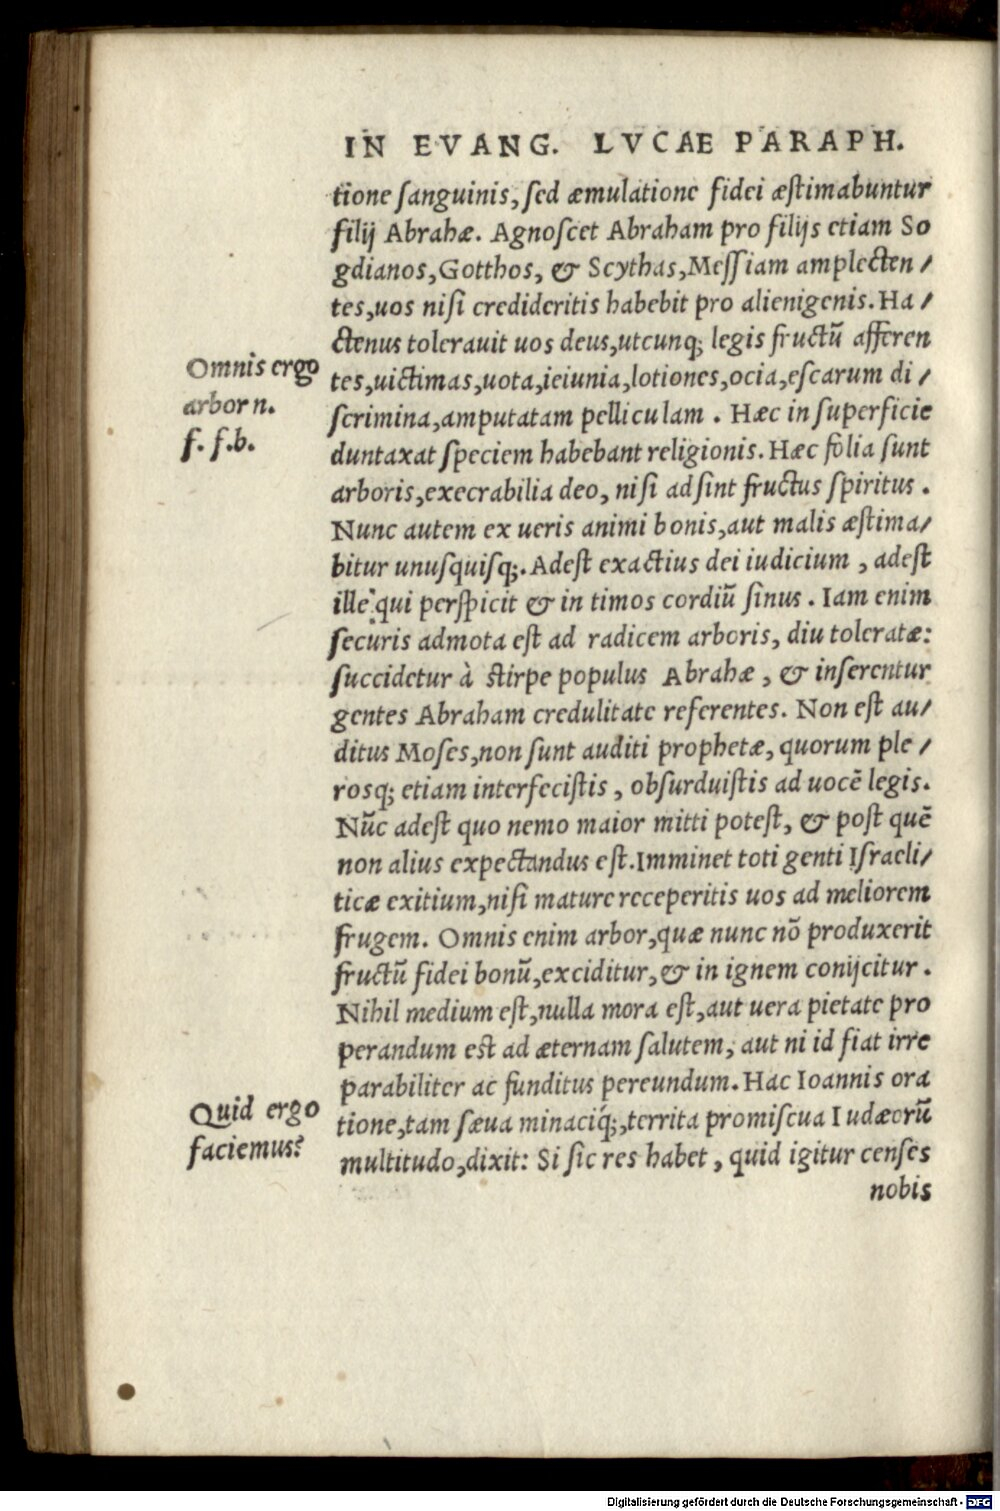 IN EVANG. LVCAE PARAPH.
tione ſanguinis, ſed æmulatione fidei æſtimabuntur
filij Abrahæ. Agnoſcet Abraham pro filijs etiam So
gdianos, Gotthos, & Scythas, Meſſiam amplecten/
tes, uos niſi credideritis habebit pro alienigenis. Ha/
ctenus tolerauit uos deus, utcunq; legis fructū afferen
Omnis ergo
arbor n.
f. f.b.
tes, uictimas, uota, ieiunia, lotiones, ocia, eſcarum di/
ſcrimina, amputatam pelliculam. Hæc in ſuperficie
duntaxat ſpeciem habebant religionis. Hæc folia ſunt
arboris, execrabilia deo, niſi adſint fructus ſpiritus.
Nunc autem ex ueris animi bonis, aut malis æſtima/
bitur unuſquiſq;. Adeſt exactius dei iudicium, adeſt
ille qui perſpicit & in timos cordiū ſinus. Iam enim
ſecuris admota eſt ad radicem arboris, diu toleratæ:
ſuccidetur à ſtirpe populus Abrahæ, & inſerentur
gentes Abraham credulitate referentes. Non eſt au/
ditus Moſes, non ſunt auditi prophetæ, quorum ple/
roſq; etiam interfeciſtis, obſurduiſtis ad uocē legis.
Nūc adeſt quo nemo maior mitti poteſt, & poſt quē
non alius expectandus eſt. Imminet toti genti Iſraeli/
ticæ exitium, niſi mature receperitis uos ad meliorem
frugem. Omnis enim arbor, quæ nunc nō produxerit
fructū fidei bonū, exciditur, & in ignem conijcitur.
Nihil medium eſt, nulla mora eſt, aut uera pietate pro
perandum eſt ad æternam ſalutem, aut ni id fiat irre
parabiliter ac funditus pereundum. Hac Ioannis ora
Quid ergo
faciemus?
tione, tam ſæua minaciq́;, territa promiſcua Iudæorū
multitudo, dixit: Si ſic res habet, quid igitur cenſes
nobis
Digitalisierung gefördert durch die Deutsche Forschungsgemeinschaft - DFG